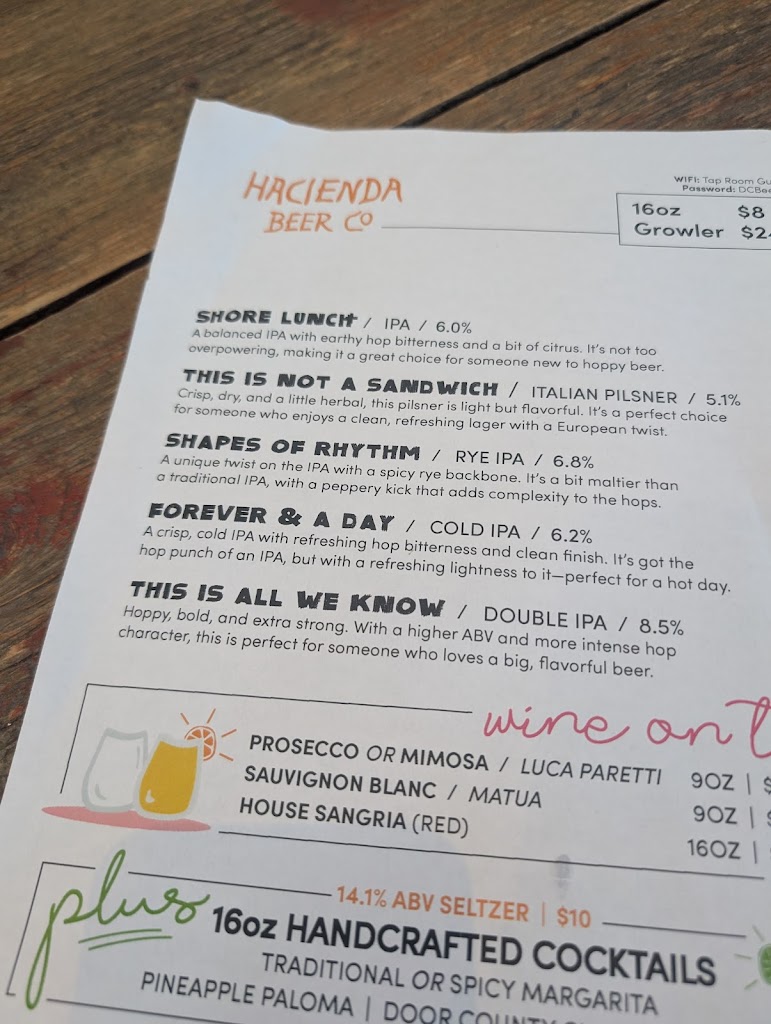 HACIENDA
BEER CO
WIFI: Tap Room
Password:
16oz $8
Growler
SHORE LUNCH / IPA / 6.0%
A balanced IPA with earthy hop bitterness and a bit of citrus. It's not too
overpowering, making it a great choice for someone new to hoppy beer.
THIS IS NOT A SANDWICH / ITALIAN PILSNER / 5.1%
Crisp, dry, and a little herbal, this pilsner is light but flavorful. It's a perfect choice
for someone who enjoys a clean, refreshing lager with a European twist.
SHAPES OF RHYTHM / RYE IPA / 6.8%
A unique twist on the IPA with a spicy rye backbone. It's a bit maltier than
a traditional IPA, with a peppery kick that adds complexity to the hops.
FOREVER & A DAY / COLD IPA / 6.2%
A crisp, cold IPA with refreshing hop bitterness and clean finish. It's got the
hop punch of an IPA, but with a refreshing lightness to it—perfect for a hot day.
THIS IS ALL WE KNOW / DOUBLE IPA / 8.5%
Hoppy, bold, and extra strong. With a higher ABV and more intense hop
character, this is perfect for someone who loves a big, flavorful beer.
wine on
PROSECCO OR MIMOSA / LUCA PARETTI 9OZ |
SAUVIGNON BLANC / MATUA 9OZ |
HOUSE SANGRIA (RED) 16OZ |
plus
14.1% ABV SELTZER | $10
16oz HANDCRAFTED COCKTAILS
TRADITIONAL OR SPICY MARGARITA
PINEAPPLE PALOMA | DOOR COUNTY